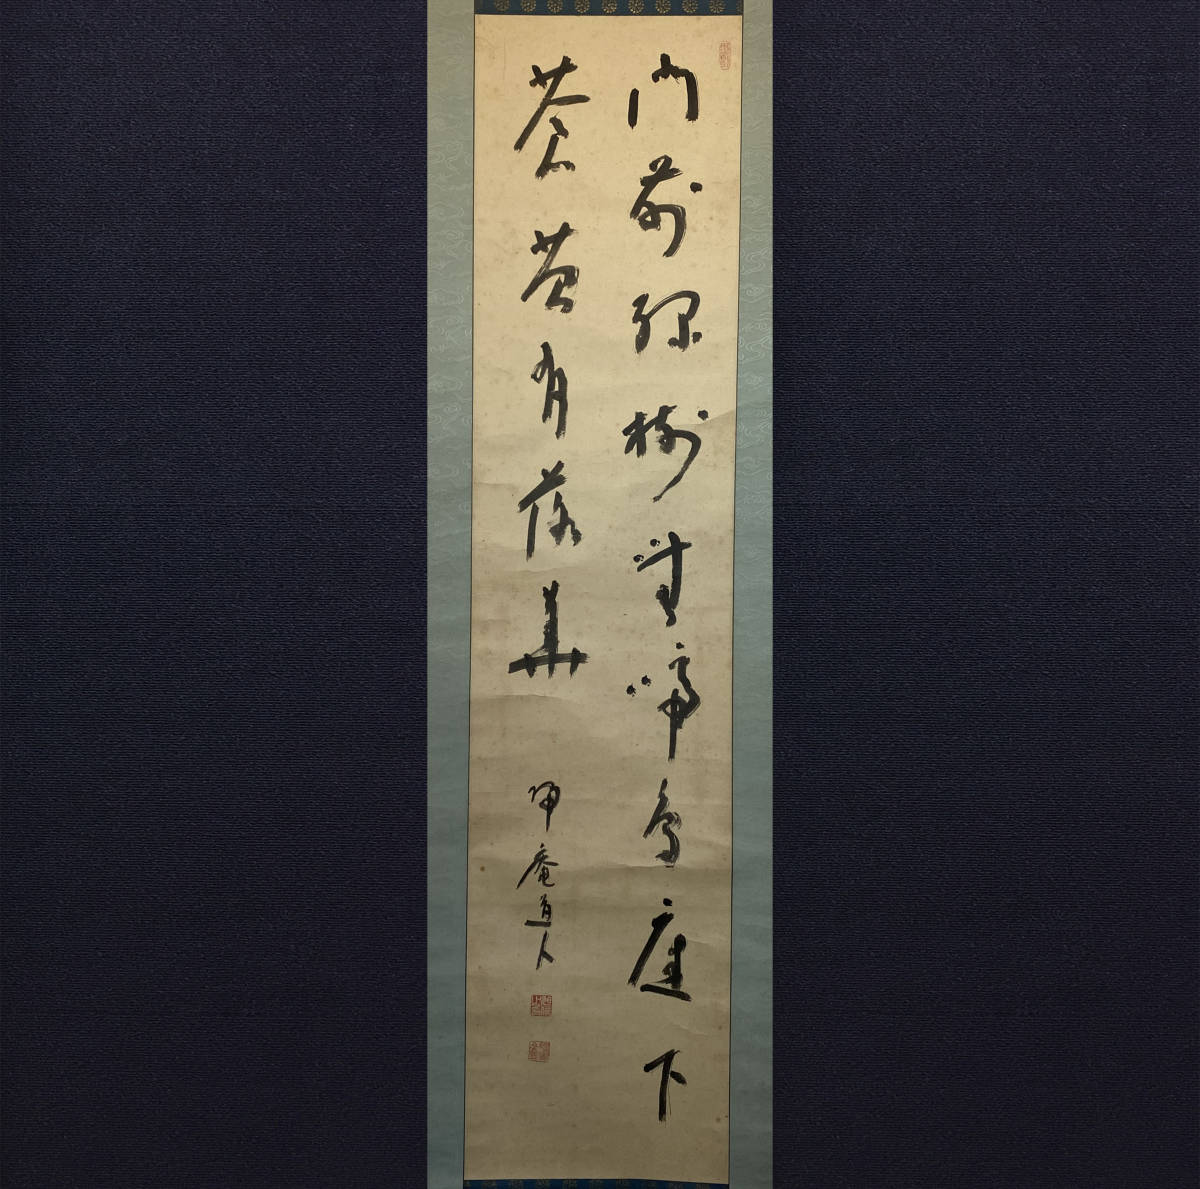 門前緑樹無啼鳥庭下
蒼苔有落華
帰庵道人